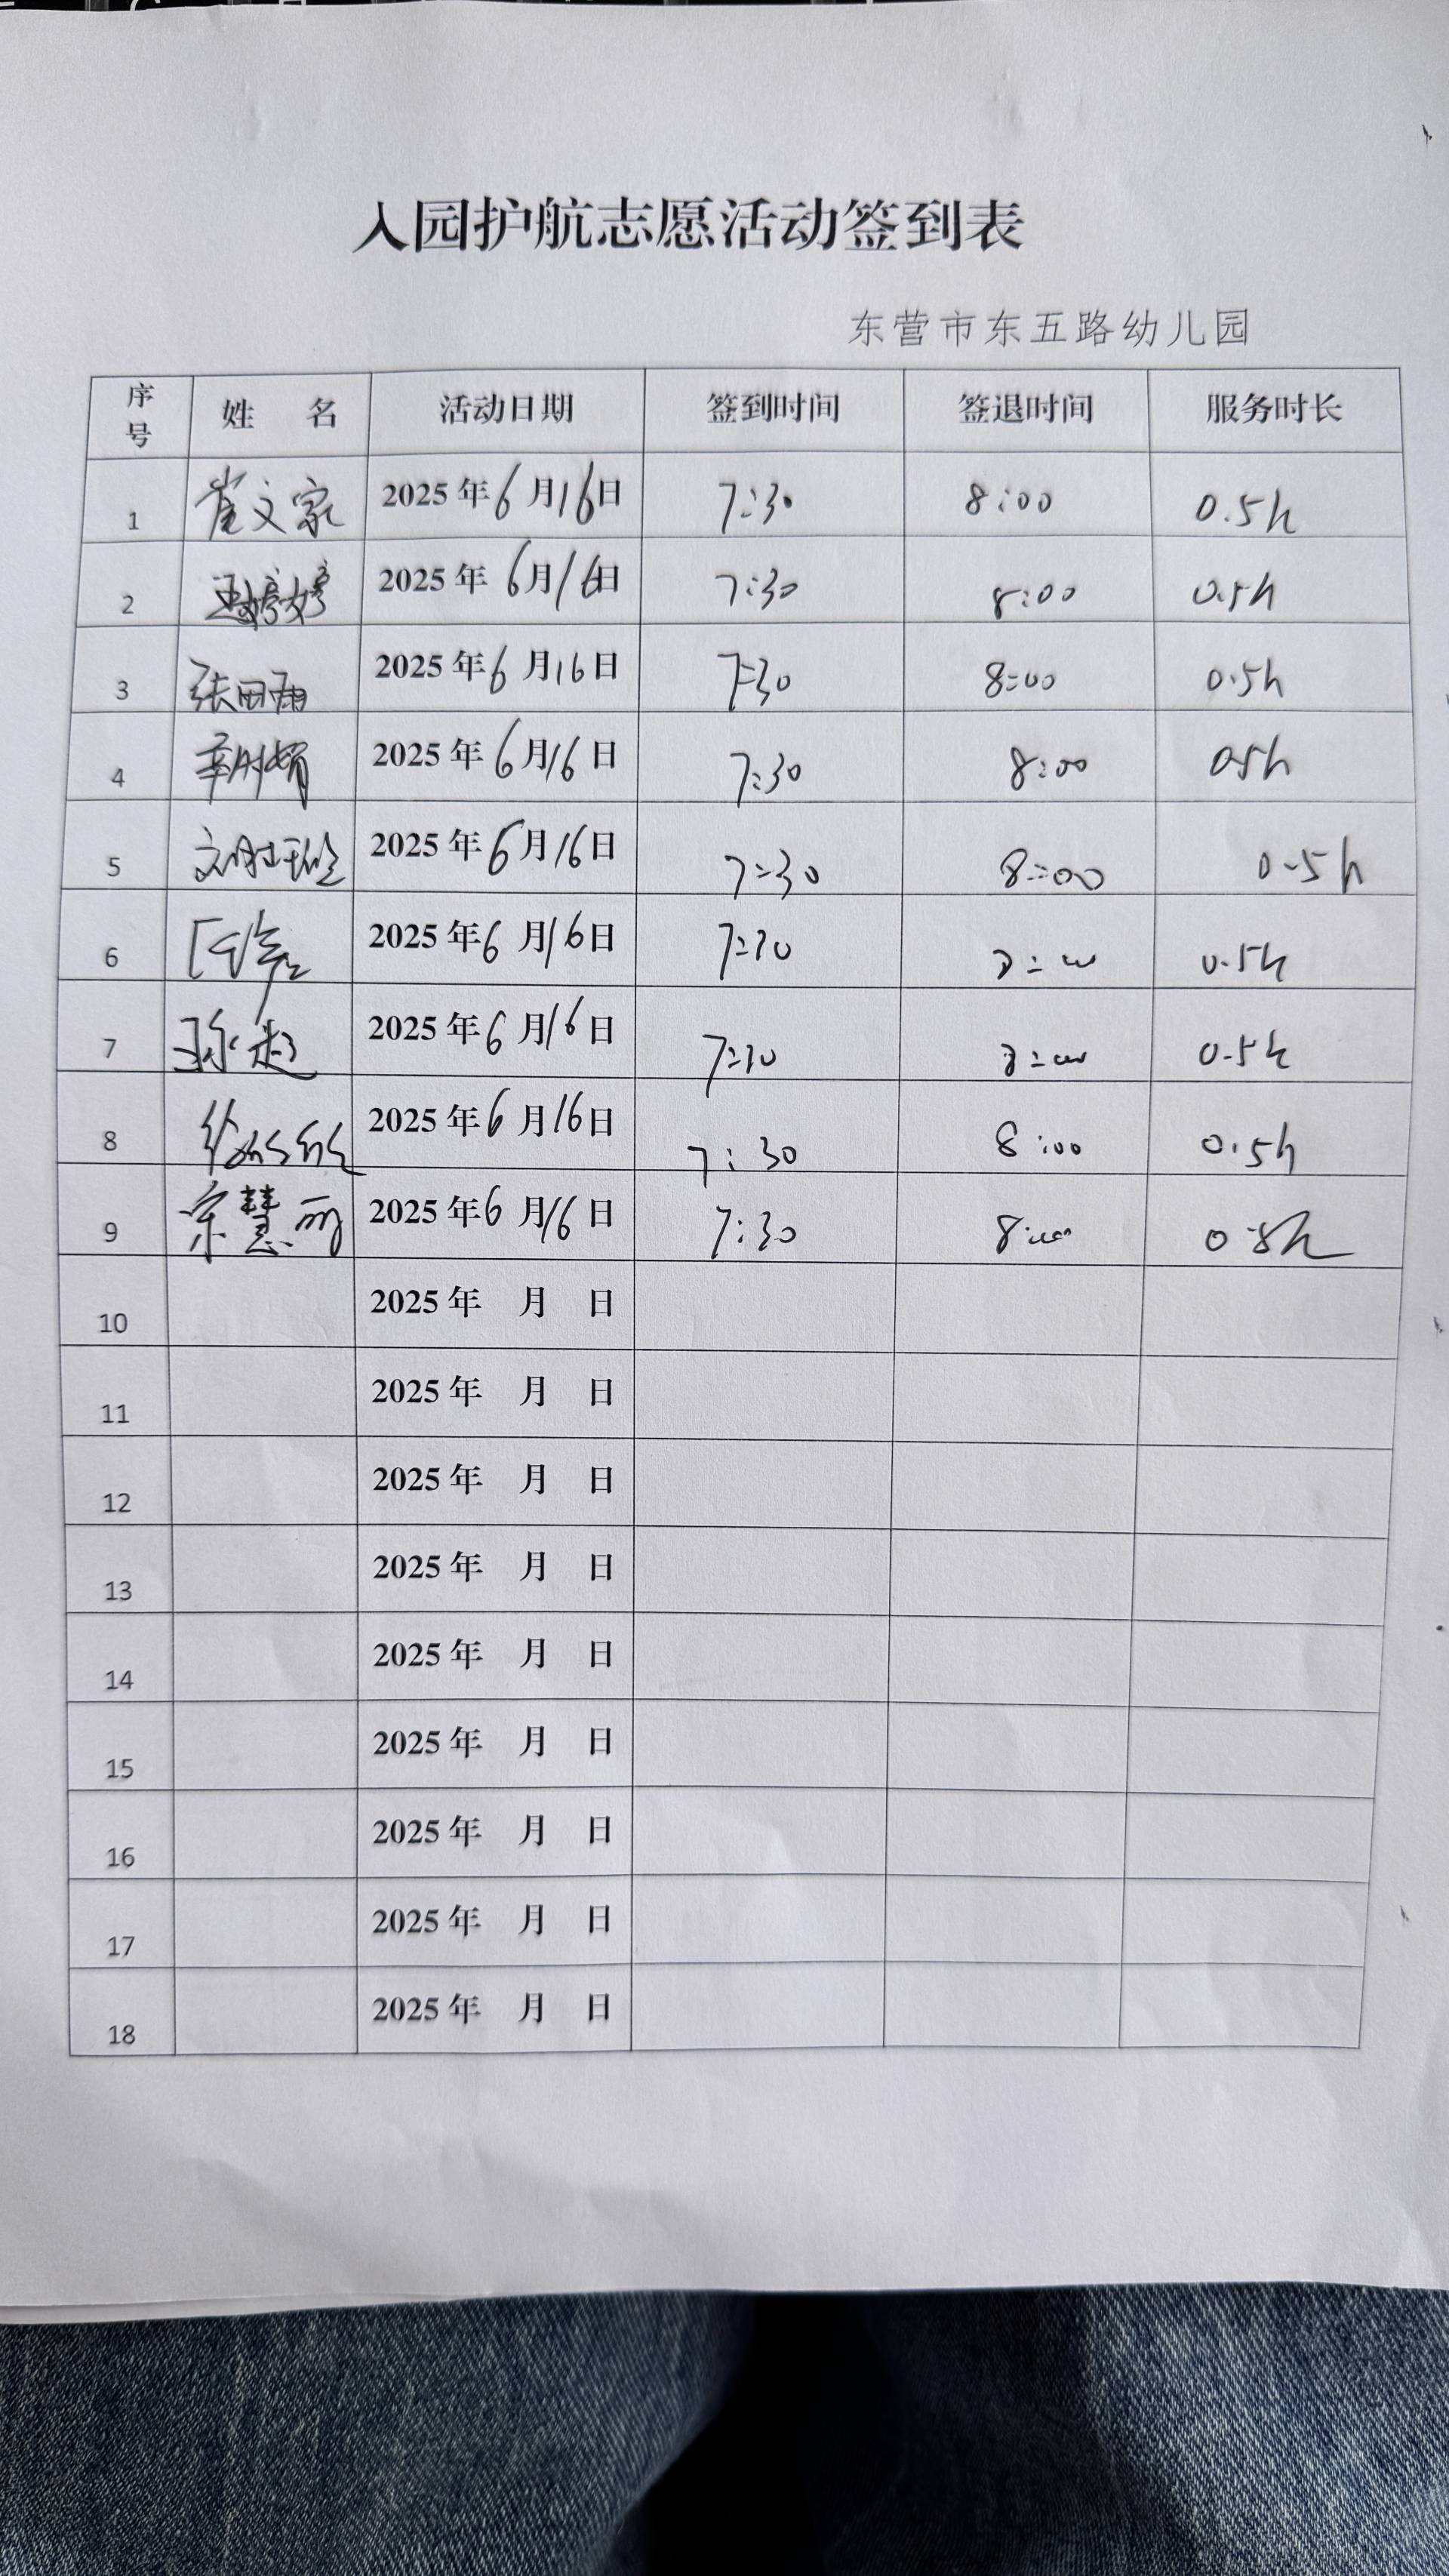 入园护航志愿活动签到表
东营市东五路幼儿园
序号 姓 名 活动日期 签到时间 签退时间 服务时长
1 崔文家 2025年6月16日 7:30 8:00 0.5h
2 2025年6月16日 7:30 8:00 0.5h
3 张田雨 2025年6月16日 7:30 8:00 0.5h
4 2025年6月16日 7:30 8:00 0.5h
5 2025年6月16日 7:30 8:00 0.5h
6 2025年6月16日 7:30 8:00 0.5h
7 孙超 2025年6月16日 7:30 8:00 0.5h
8 2025年6月16日 7:30 8:00 0.5h
9 宋慧丽 2025年6月16日 7:30 8:00 0.5h
10 2025年 月 日
11 2025年 月 日
12 2025年 月 日
13 2025年 月 日
14 2025年 月 日
15 2025年 月 日
16 2025年 月 日
17 2025年 月 日
18 2025年 月 日